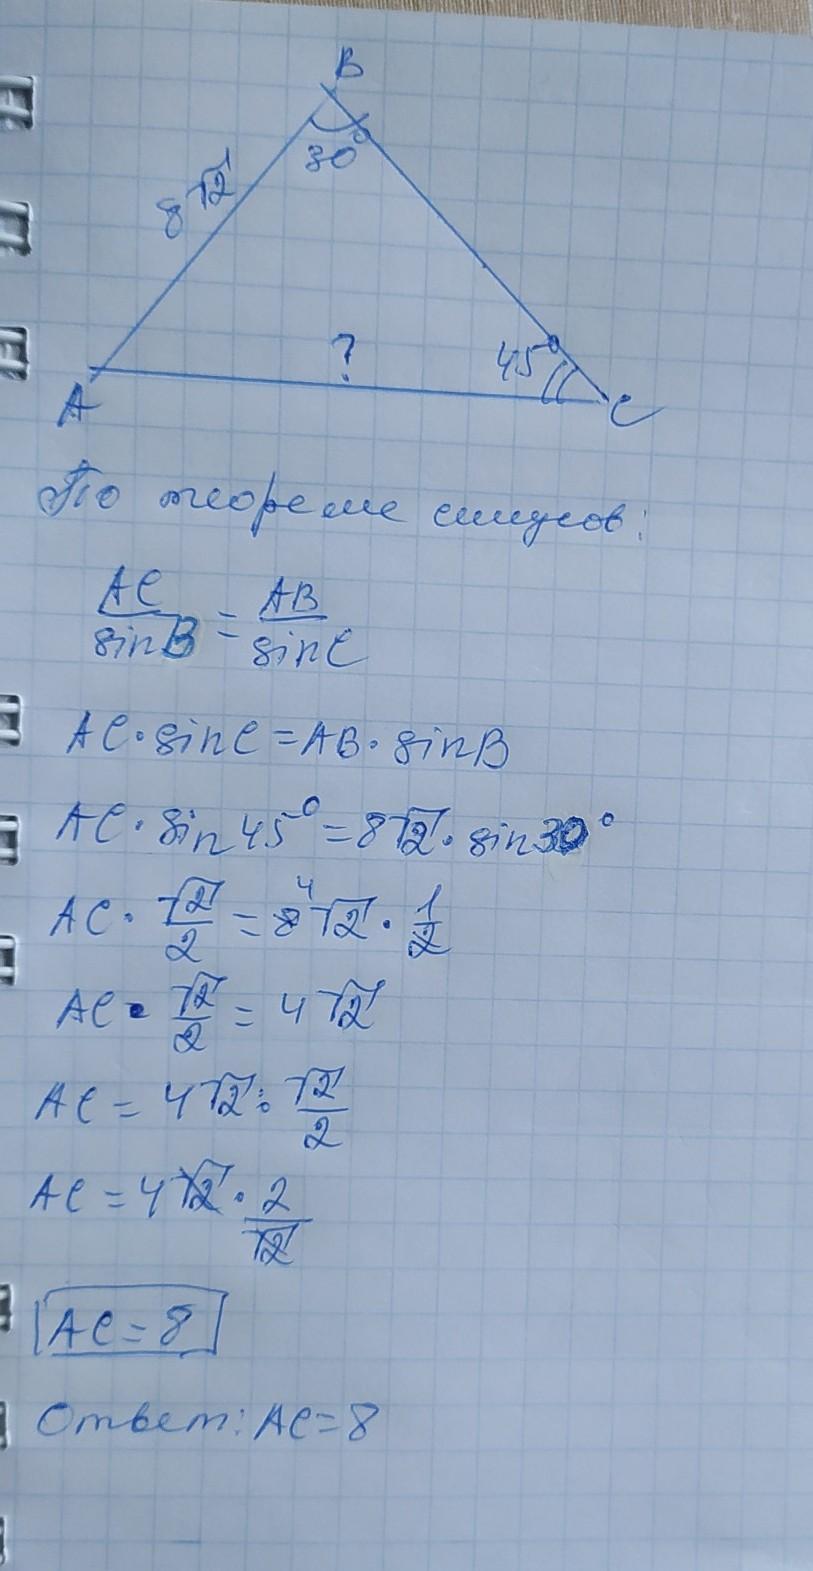 B
30°
8√2
?
45°
A
C
По теореме синусов:
AC/sinB = AB/sinC
AC·sinC=AB·sinB
AC·sin45°=8√2·sin30°
AC·√2/2=8 4√2·1/2
AC·√2/2=4√2
AC=4√2:√2/2
AC=4√2·2/√2
AC=8
Ответ: AC=8